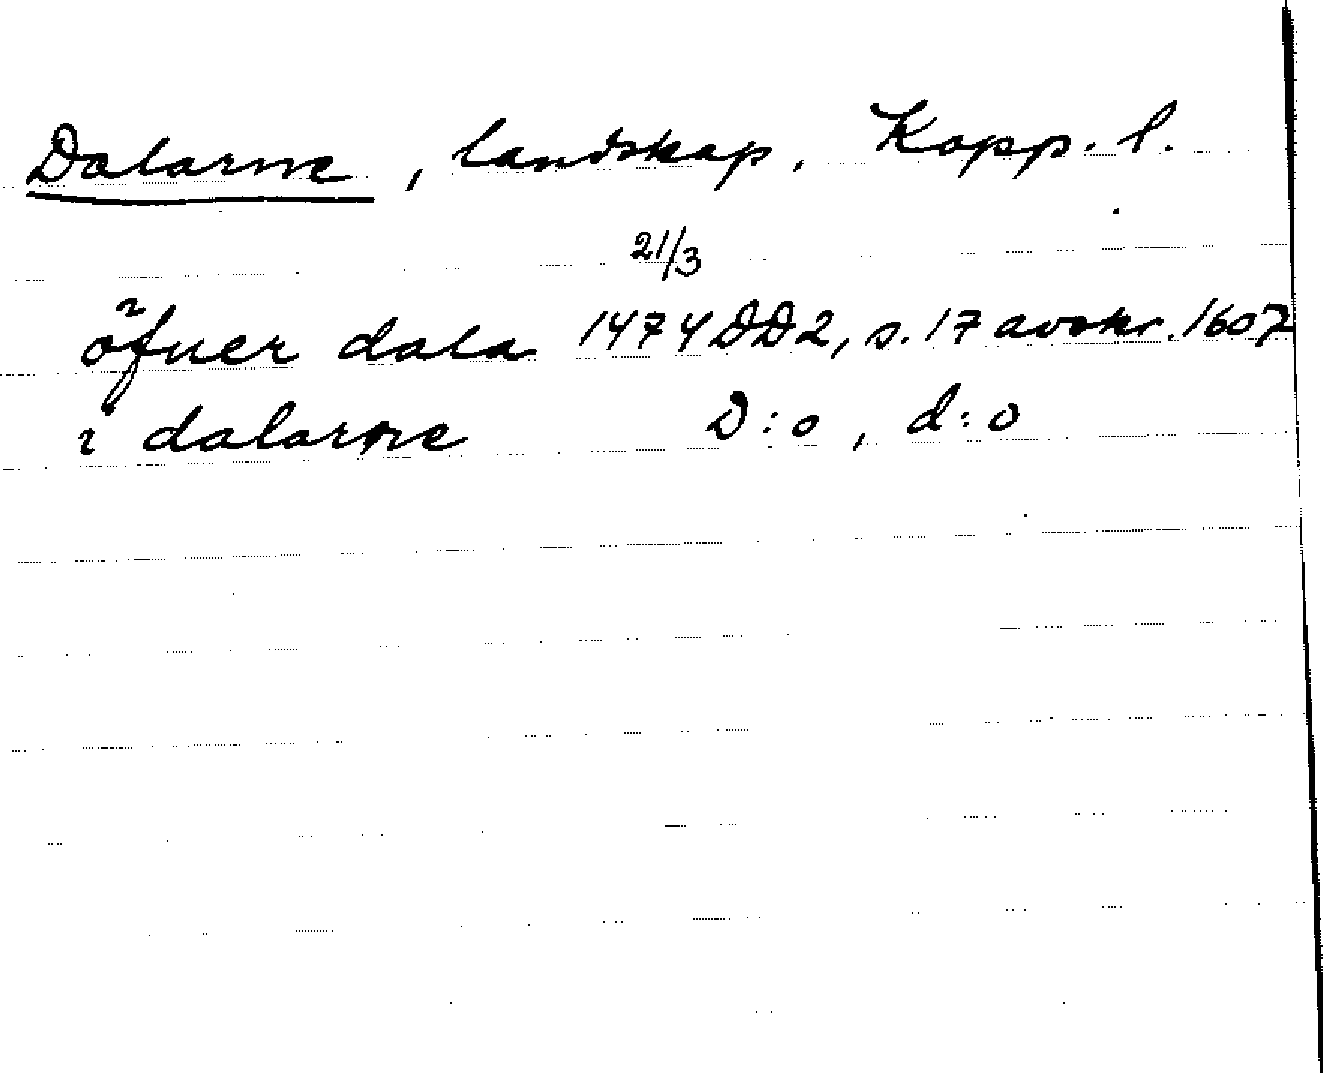 Dalarne, landskap. Kopp. l.
21/3
öfuer dala 1474 DD2, s. 17 avskr. 1607
i dalarne D:o, d:o